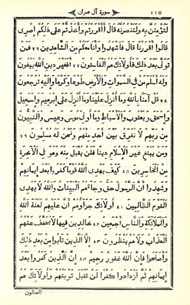 سورة آل عمران
لتؤمنن به ولتنصرنه قال أأقررتم وأخذتم على ذلكم إصري
قالوا أقررنا قال فاشهدوا وأنا معكم من الشاهدين فمن
تولى بعد ذلك فأولئك هم الفاسقون أفغير دين الله يبغون
وله أسلم من في السموات والأرض طوعا وكرها وإليه يرجعون
قل آمنا بالله وما أنزل علينا وما أنزل على إبراهيم وإسمعيل
وإسحق ويعقوب والأسباط وما أوتي موسى وعيسى والنبيون
من ربهم لا نفرق بين أحد منهم ونحن له مسلمون
ومن يبتغ غير الإسلام دينا فلن يقبل منه وهو في الآخرة
من الخاسرين كيف يهدي الله قوما كفروا بعد إيمانهم
وشهدوا أن الرسول حق وجاءهم البينات والله لا يهدي
القوم الظالمين أولئك جزاؤهم أن عليهم لعنة الله
والملائكة والناس أجمعين خالدين فيها لا يخفف عنهم
العذاب ولا هم ينظرون إلا الذين تابوا من بعد ذلك
وأصلحوا فإن الله غفور رحيم إن الذين كفروا بعد
إيمانهم ثم ازدادوا كفرا لن تقبل توبتهم وأولئك هم
الضالون